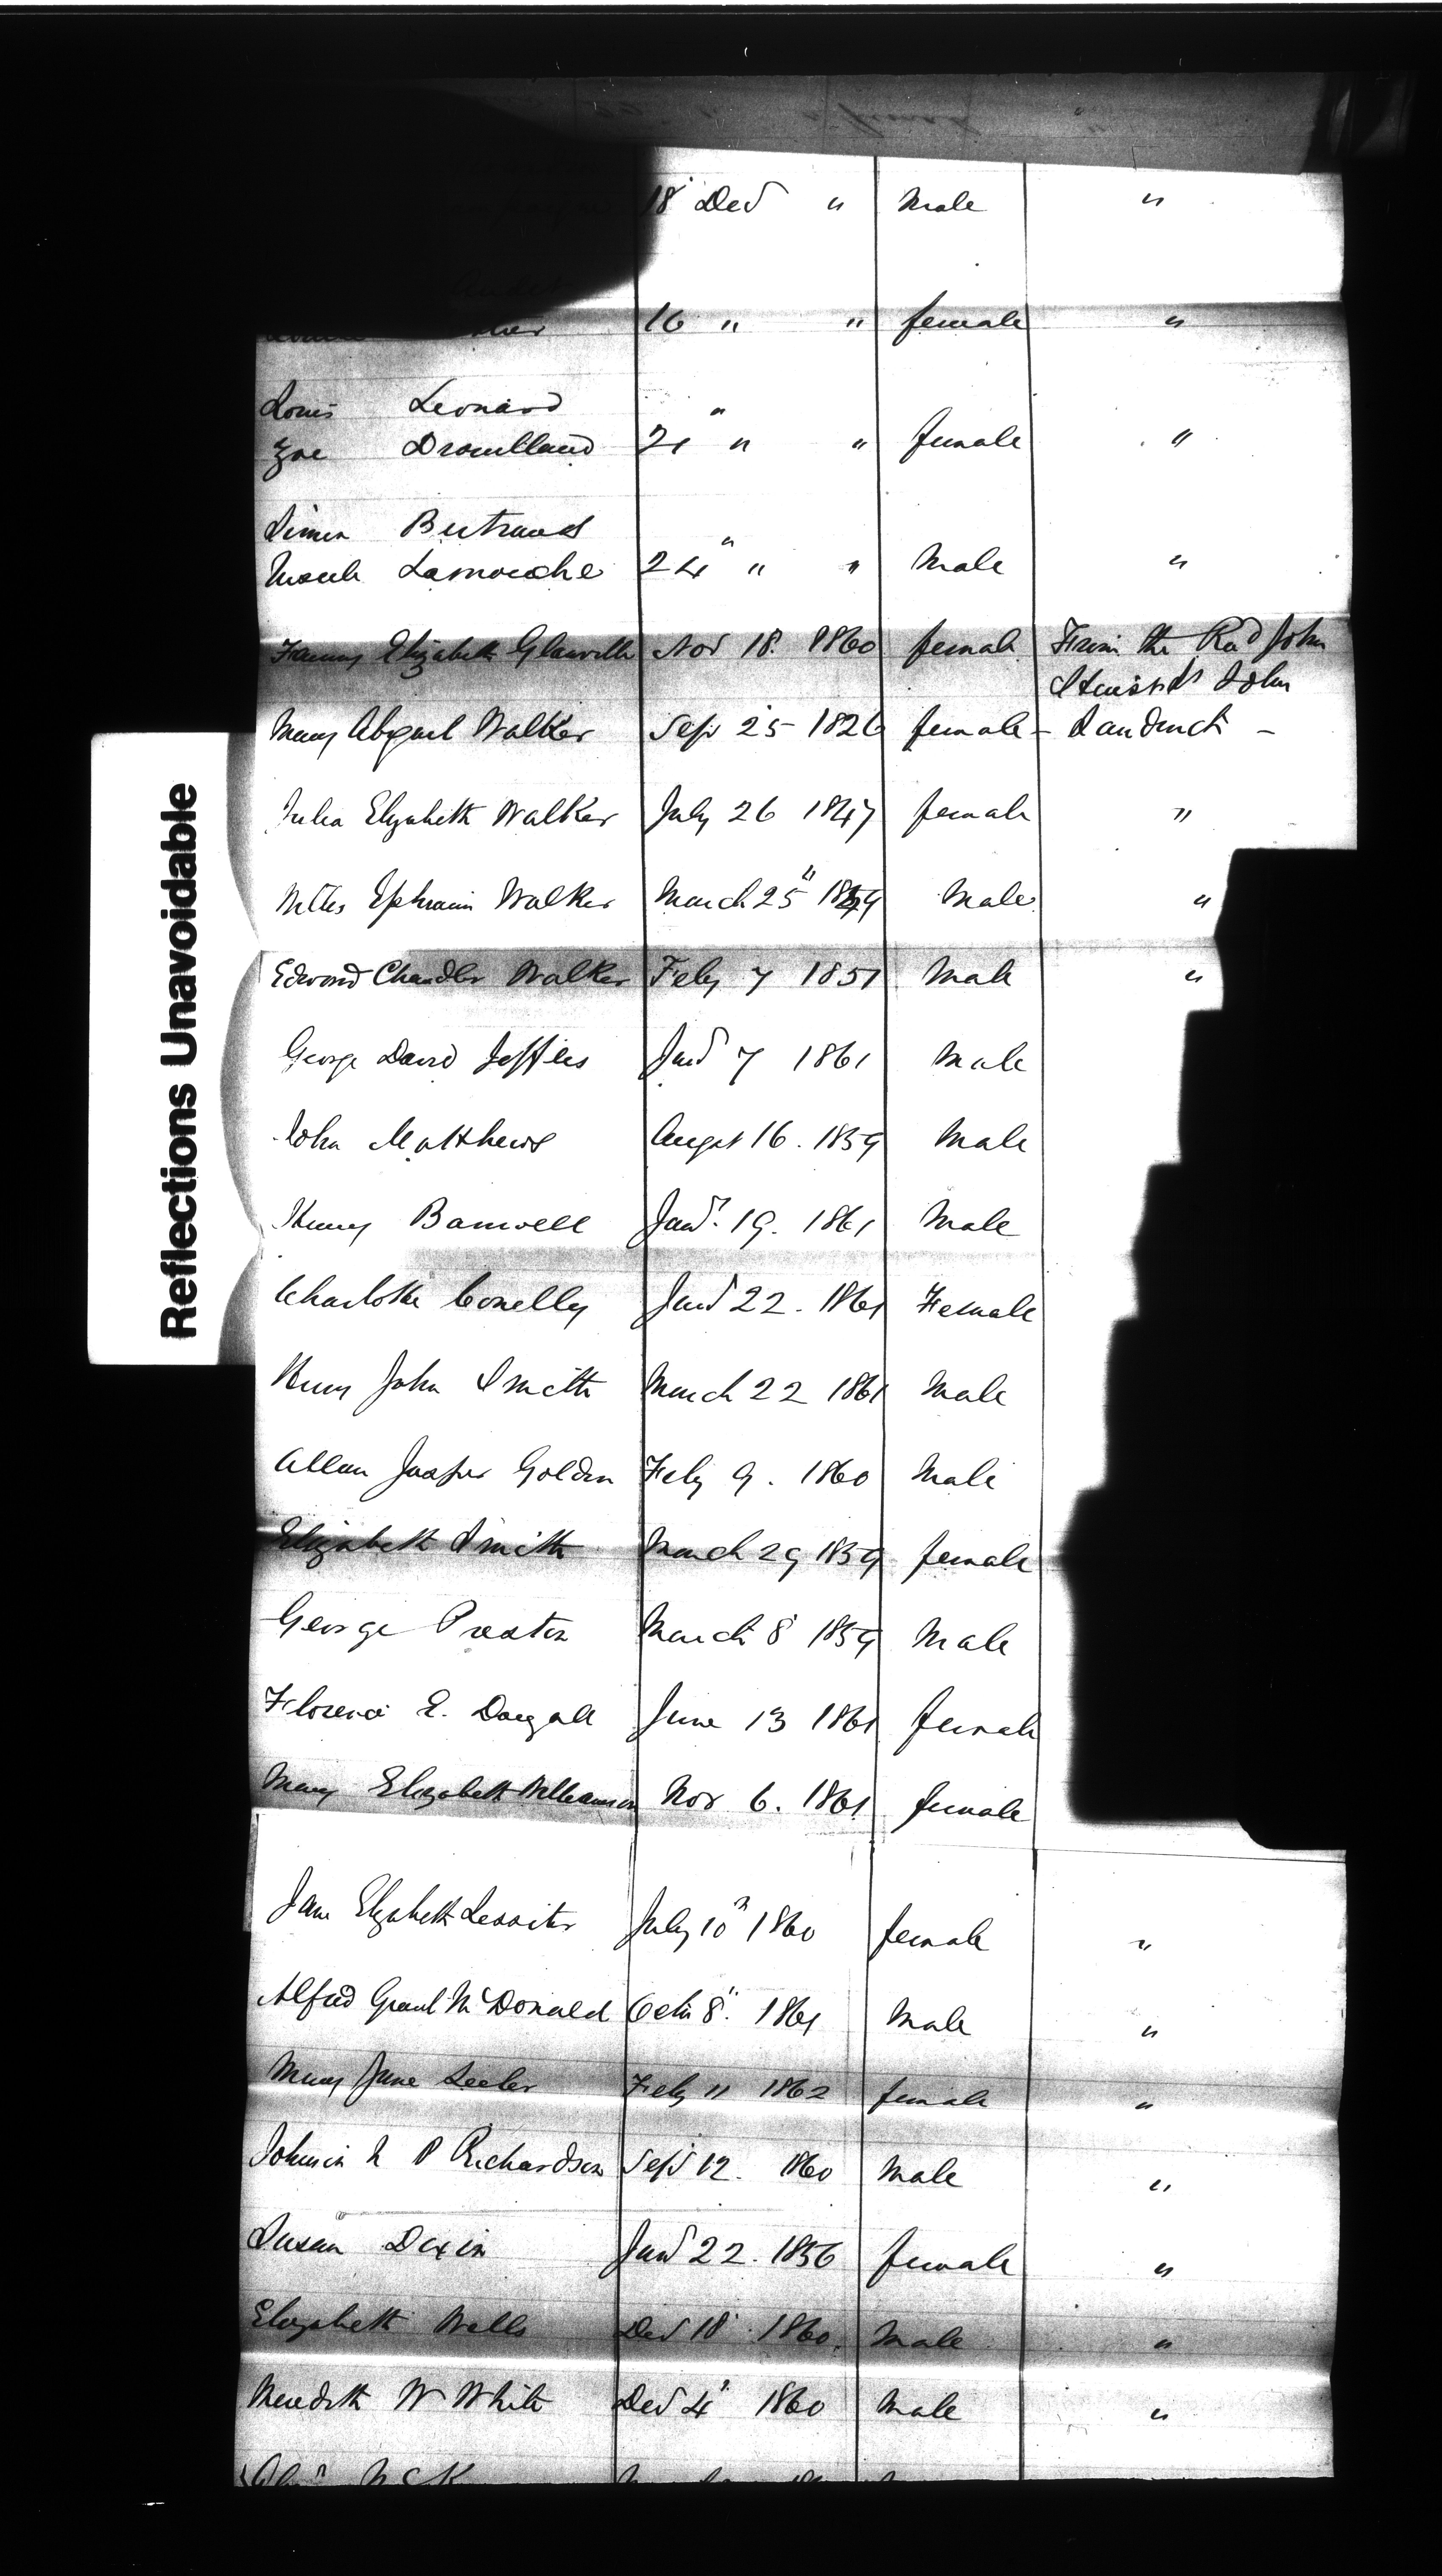 18 Decr " Male "
16 " " female "
Louis Leonard "
Zoe Drouilland 21 " " female "
Simon Bertrand "
Lamouche 24 " " Male "
Fanny Elizabeth Glanville Nov 18. 1860 female From the Revd John
Strees St John
Mary Abigail Walker Sept 25 1826 female - Sandwich -
Julia Elizabeth Walker July 26 1847 female "
Ephraim Walker March 25 " Male "
Edward Chandler Walker Feby 7 1851 Male "
George David Jeffles Jany 7 1861 Male
John Matthews August 16. 1859 Male
Henry Banwell Jany. 19. 1861 Male
Charlotte Conelly Jany 22. 1861 Female
Henry John Smith March 22 1861 Male
Allan Jasper Golden Feby 9. 1860 Male
Elizabeth Smith March 29 1859 female
George Preston March 8 1859 Male
Florence E. Dougall June 13 1861 female
Mary Elizabeth Williamson Nov 6. 1861 female
Jane Elizabeth Lassiter July 10 " 1860 female "
Alfred Grant McDonald Octr 8". 1861 Male "
Mary Jane Feby 11 1862 female "
Johnson N P Richardson Sept 12. 1860 Male "
Susan Dixin Jany 22. 1856 female "
Elizabeth Wells Decr 18 1860. Male "
Meredith W White Decr 4" 1860 Male "
Reflections Unavoidable